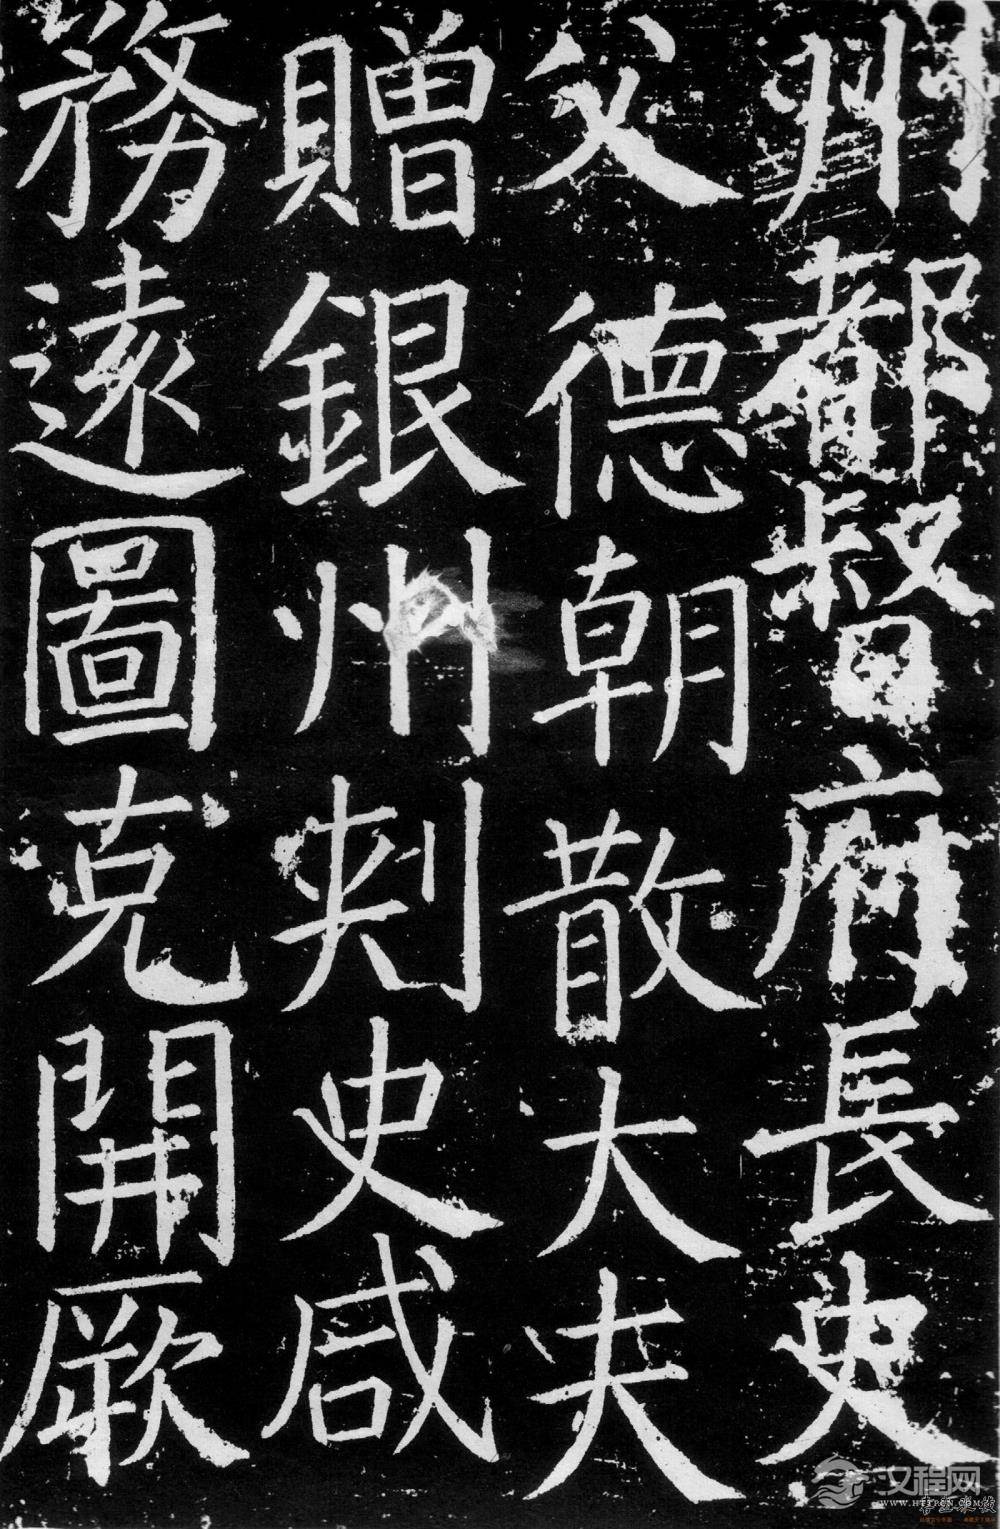 州都督府長史
父德朝散大夫
贈銀州刺史咸
務遠圖克開厥
汉程网
WWW.HTTPCN.COM